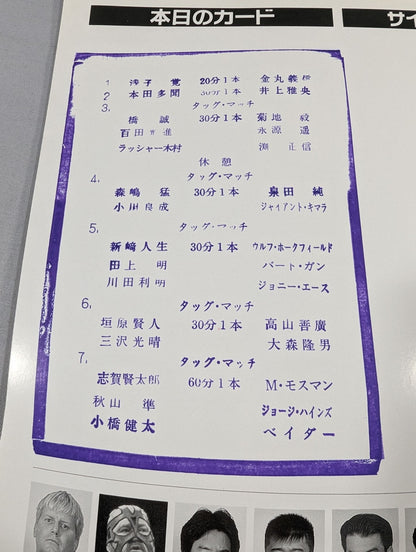 本日のカード
サイ
1 浅子 覚 20分1本 金丸義信
2 本田多聞 30分1本 井上雅央
3. タッグ・マッチ
橋 誠 30分1本 菊地 毅
百田光進 永源 遥
ラッシャー木村 渕 正信
休憩
4. タッグ・マッチ
森嶋 猛 30分1本 泉田 純
小川良成 ジャイアント・キマラ
5. タッグ・マッチ
新崎人生 30分1本 ウルフ・ホークフィールド
田上 明 バート・ガン
川田利明 ジョニー・エース
6. タッグ・マッチ
垣原賢人 30分1本 高山善廣
三沢光晴 大森隆男
7. タッグ・マッチ
志賀賢太郎 60分1本 M・モスマン
秋山 準 ジョージ・ハインズ
小橋健太 ベイダー